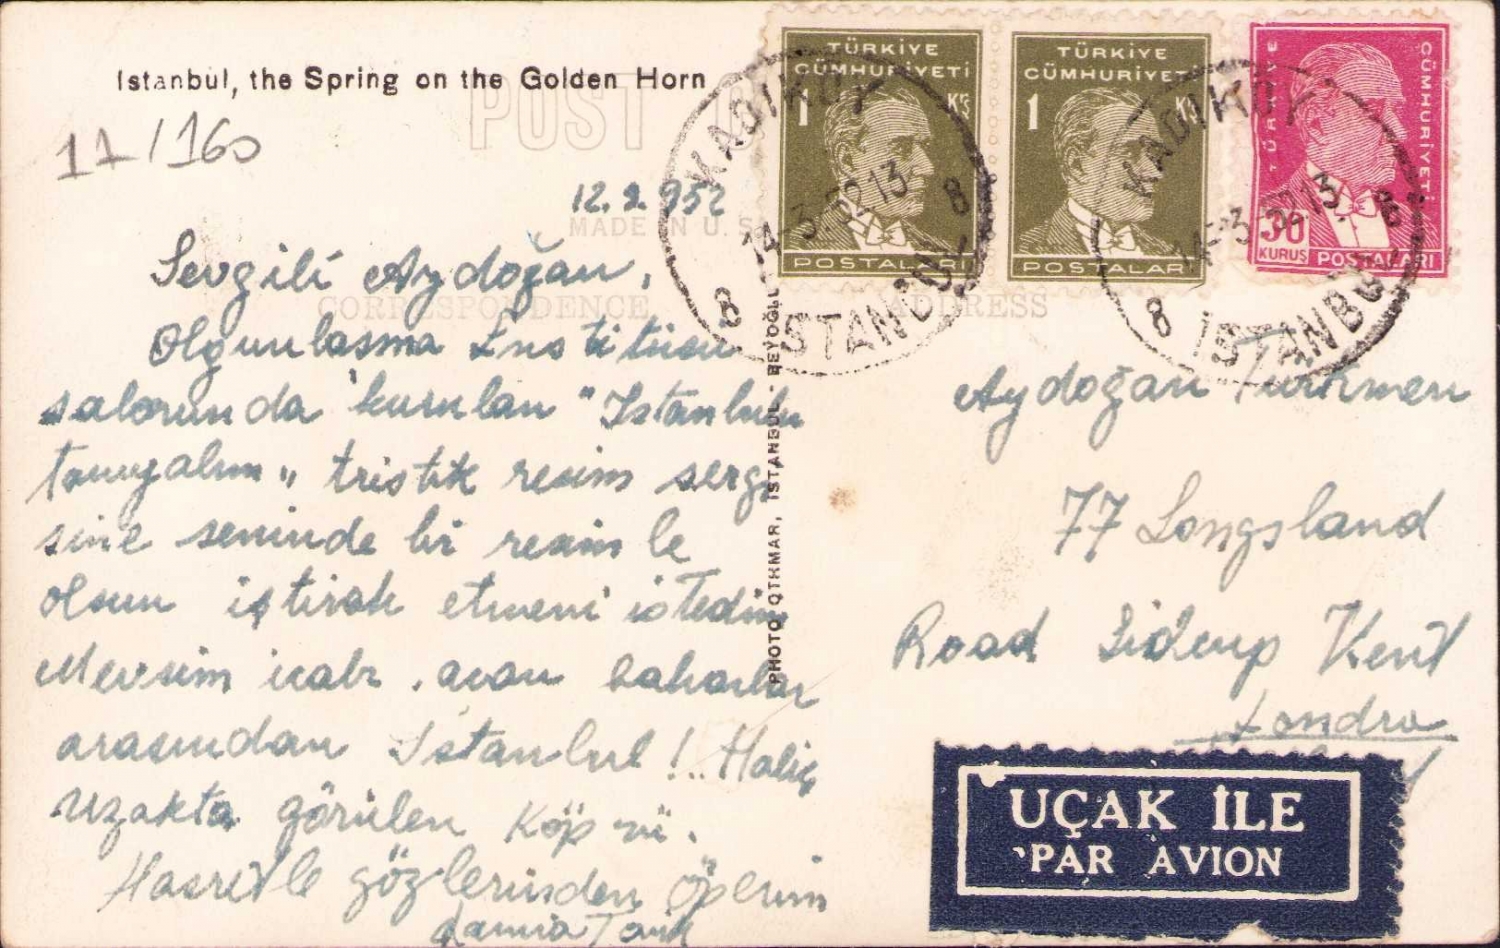 Istanbul, the Spring on the Golden Horn
POST
17/160
12.2.952
MADE IN U.S.
CORRESPONDENCE
ADDRESS
Sevgili Aydoğan,
Olgunlasma Enstitüsü
salonunda kurulan "Istanbulu
tanıyalım" tristik resim sergi
sine seninde bir resimle
olsun iştirak etmeni istedim
Mevsim icabı açan baharlar
arasından Istanbul!.. Haliç
uzakta görülen Köprü.
Hasretle gözlerinden öperim
PHOTO OTKMAR, ISTANBUL - BEYOĞL
TÜRKİYE
CÜMHURİYETİ
1 Krş
POSTALARI
TÜRKİYE
CÜMHURİYETİ
1 Kr
POSTALARI
TÜRKİYE
CÜMHURİYETİ
30
KURUŞ POSTALARI
KADIKÖY
14-3.52 13
8 8
İSTANBUL
KADIKÖY
14-3.52 13
8 8
İSTANBUL
Aydoğan Türkmen
77 Longsland
Road Sidcup Kent
Londra
UÇAK İLE
PAR AVION